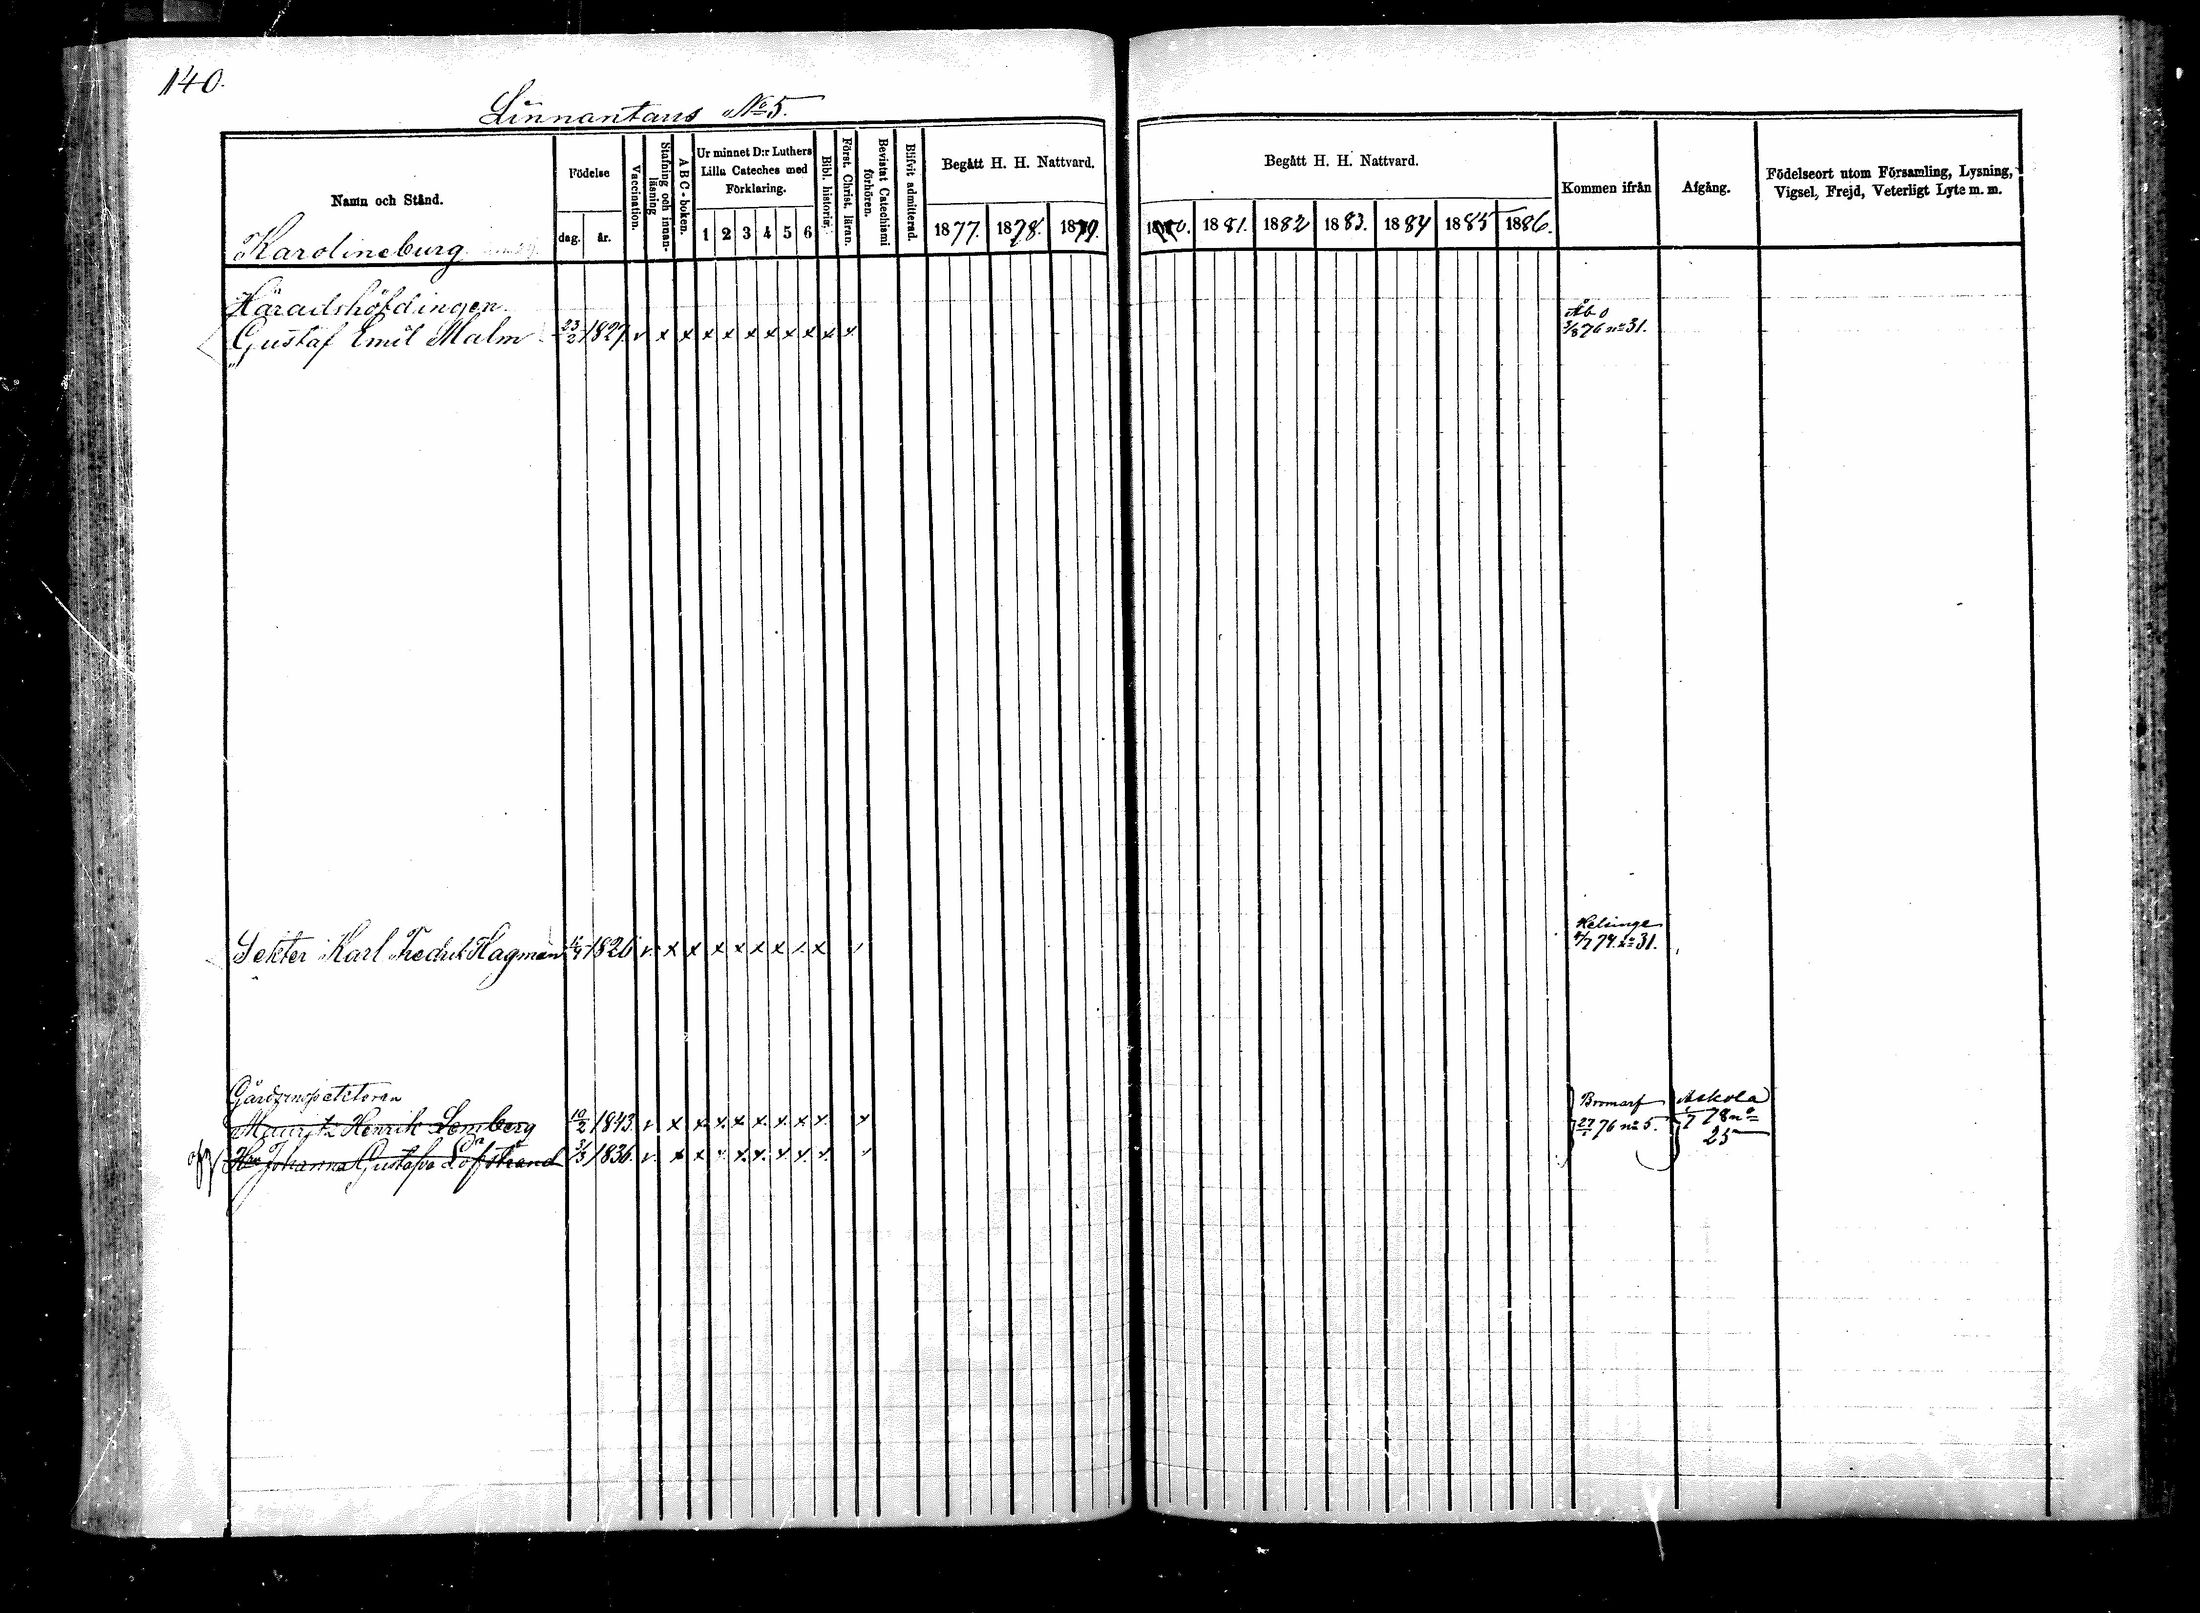 140.
Linnantaus No 5.
Namn och Stånd.
Födelse
dag.
år.
Vaccination.
Stafning och innan-
läsning
ABC-boken.
Ur minnet D:r Luthers
Lilla Cateches med
Förklaring.
1 2 3 4 5 6
Bibl. historia.
Först. Christ. läran.
Bevistat Catechismi
förhören.
Blifvit admitterad.
Begått H. H. Nattvard.
1877. 1878. 1879.
Begått H. H. Nattvard.
1881. 1882 1883. 1884 1885 1886.
Kommen ifrån
Afgång.
Födelseort utom Församling, Lysning,
Vigsel, Frejd, Veterligt Lyte m. m.
Karolineburg
Häradshöfdingen
Gustaf Emil Malm 23/2 1827 v x x x x x x x x x x
Åbo
3/8 76 no 31.
Sekter Karl Fredrik Hagman 1826 v x x x x x x x x
Helsinge
74. no 31.
Mauritz Henrik Lemberg 10/2 1843. v x x x x x x x x x
Bromarf
27/1 76 no 5.
Askola
78 no
25
Hu Johanna Gustafva Löfstrand 3/3 1836. v x x x x x x x x